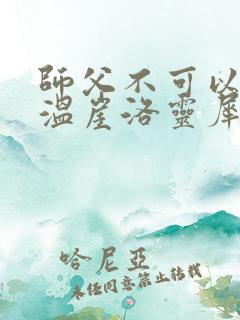 師父不可以
溫崖洛靈犀
哈尼亞
未經同意禁止轉載